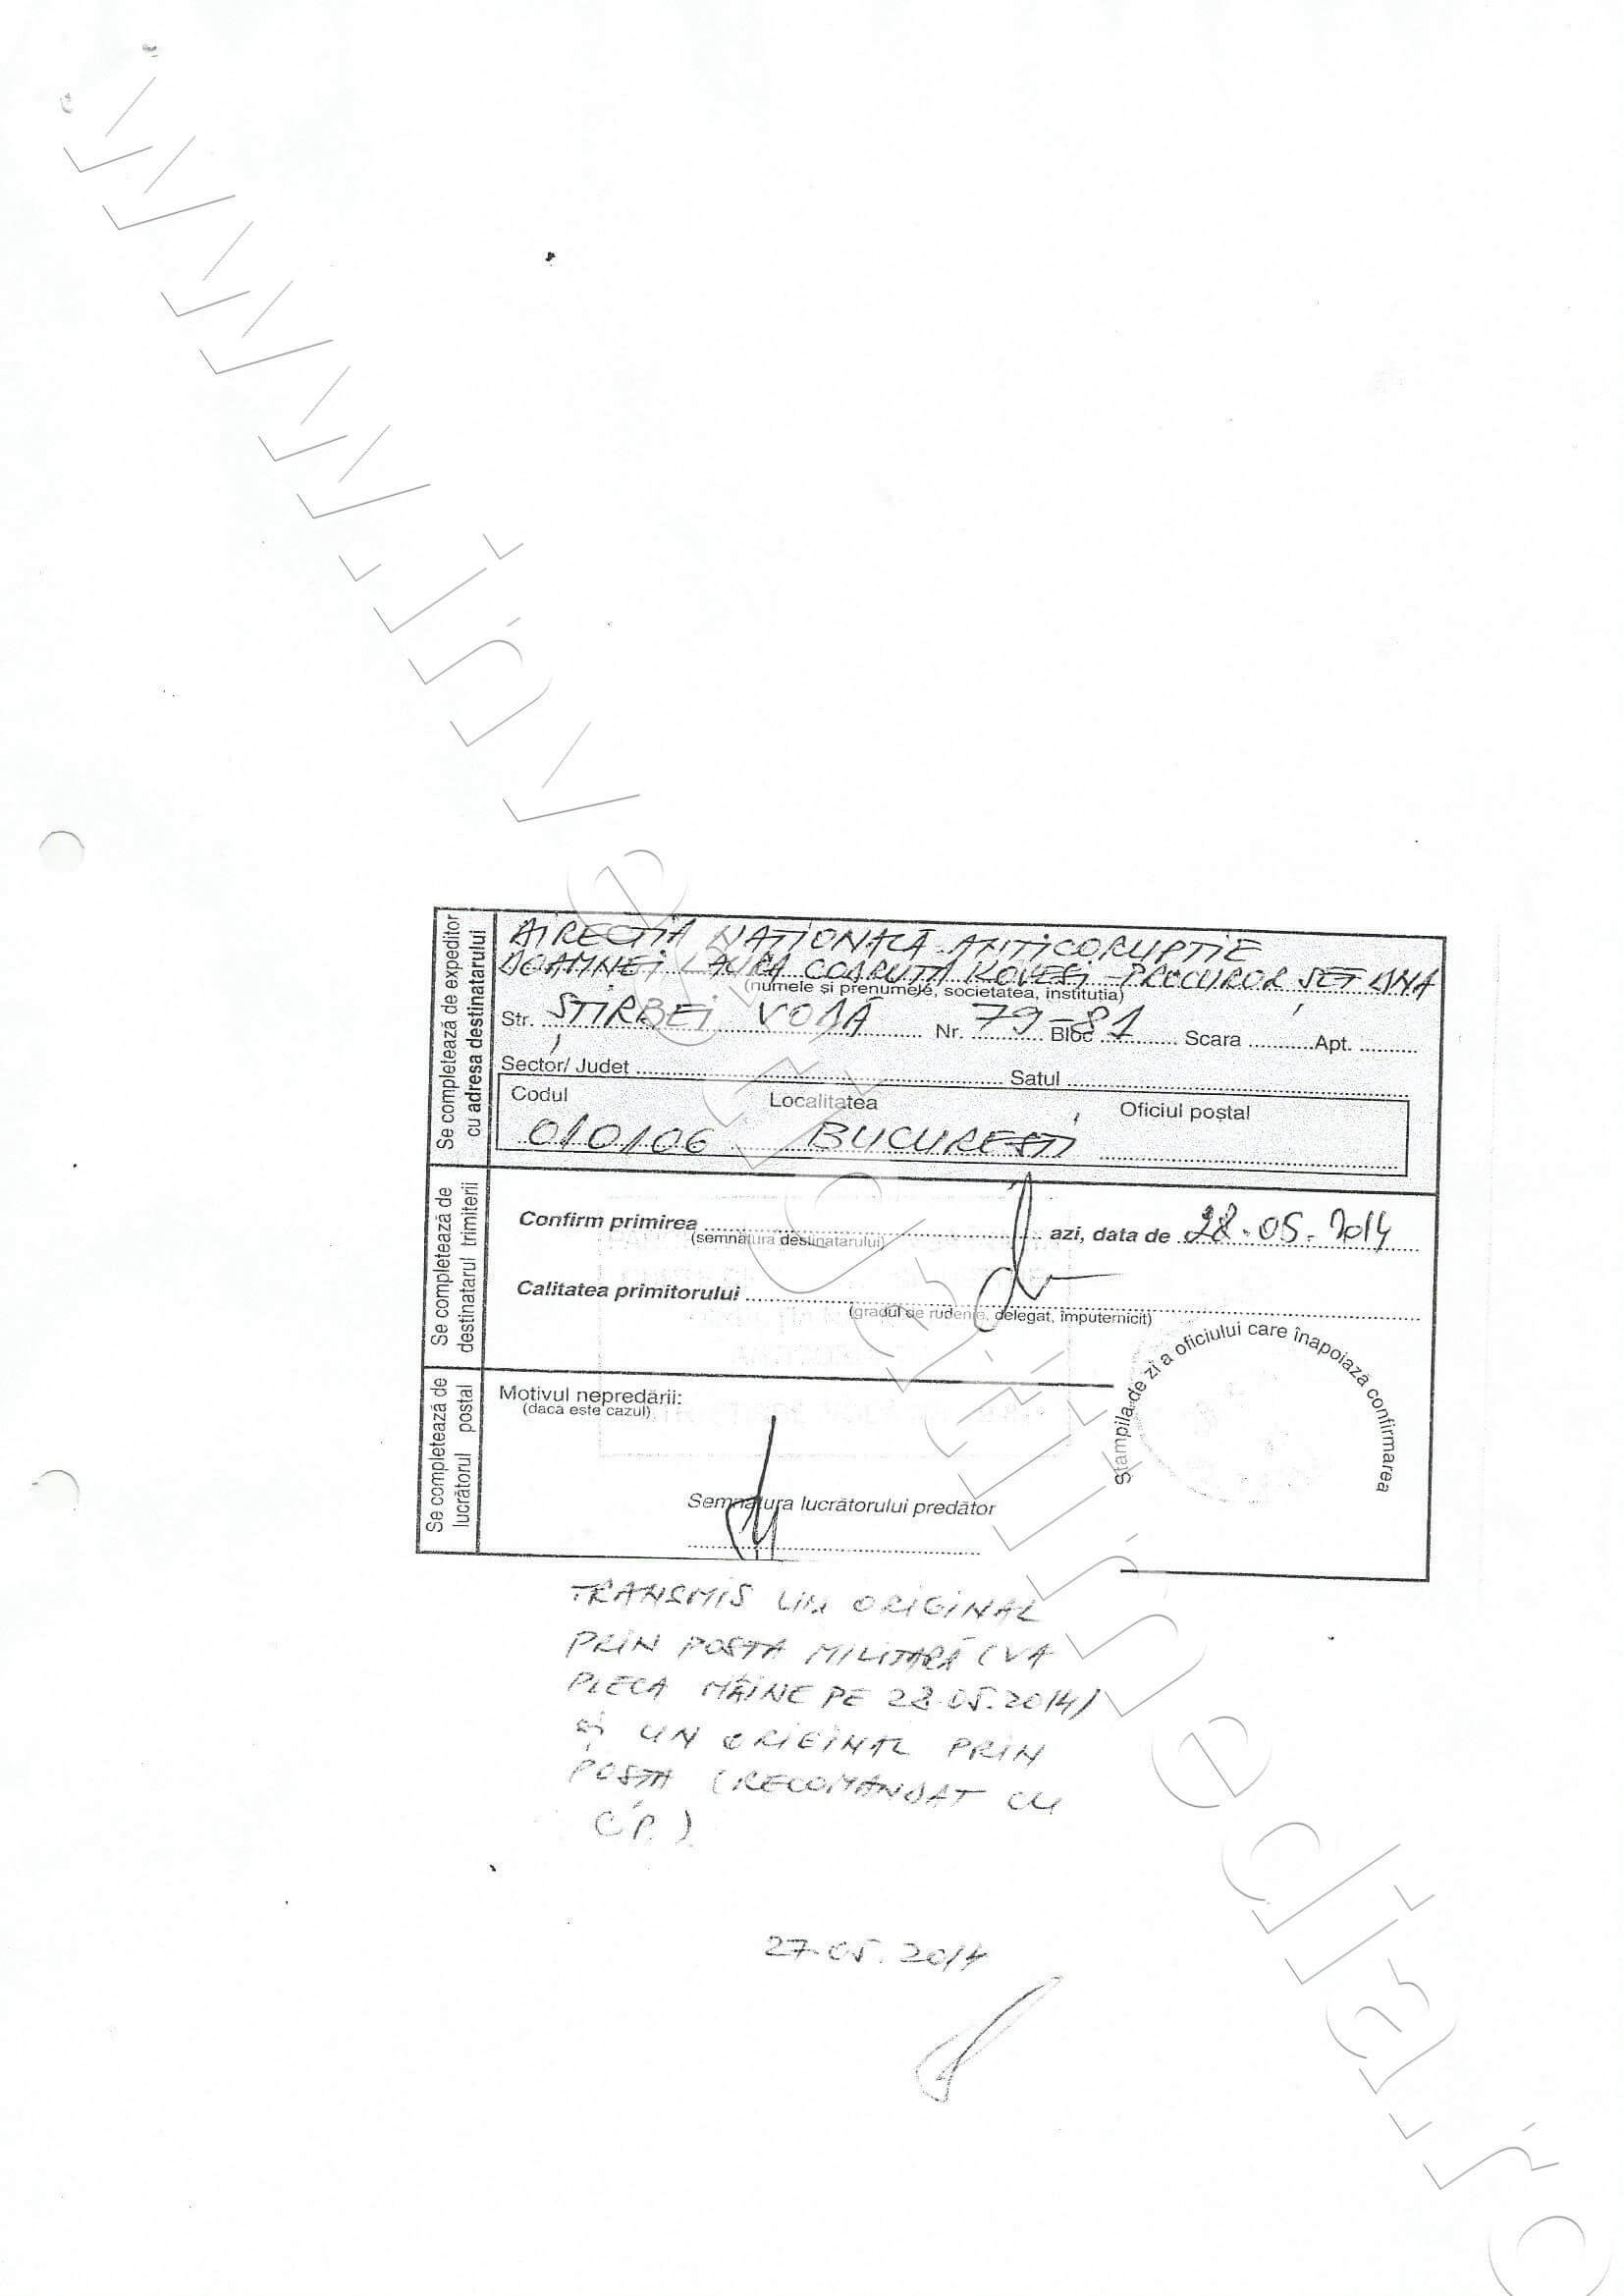 Se completează de expeditor
cu adresa destinatarului
DIRECȚIA NAȚIONALĂ ANTICORUPTIE
DOAMNEI LAURA CODRUTA KOVESI - PROCUROR ȘEF DNA
(numele și prenumele, societatea, instituția)
Str. ȘTIRBEI VODĂ Nr. 79-81 Bloc Scara Apt.
Sector/ Judet Satul
Codul Localitatea Oficiul poștal
010106 BUCUREȘTI
Se completează de
destinatarul trimiterii
Confirm primirea azi, data de 28.05.2014
(semnătura destinatarului)
Calitatea primitorului
(gradul de rudenie, delegat, împuternicit)
Se completează de
lucrătorul postal
Motivul nepredării:
(dacă este cazul)
Ștampila de zi a oficiului care înapoiază confirmarea
Semnătura lucrătorului predător
TRANSMIS UN ORIGINAL
PRIN POȘTA MILITARĂ (VA
PLECA MÂINE PE 28.05.2014)
și UN ORIGINAL PRIN
POȘTA (RECOMANDAT CU
C.P.)
27.05.2014
www.investigatiimedia.ro